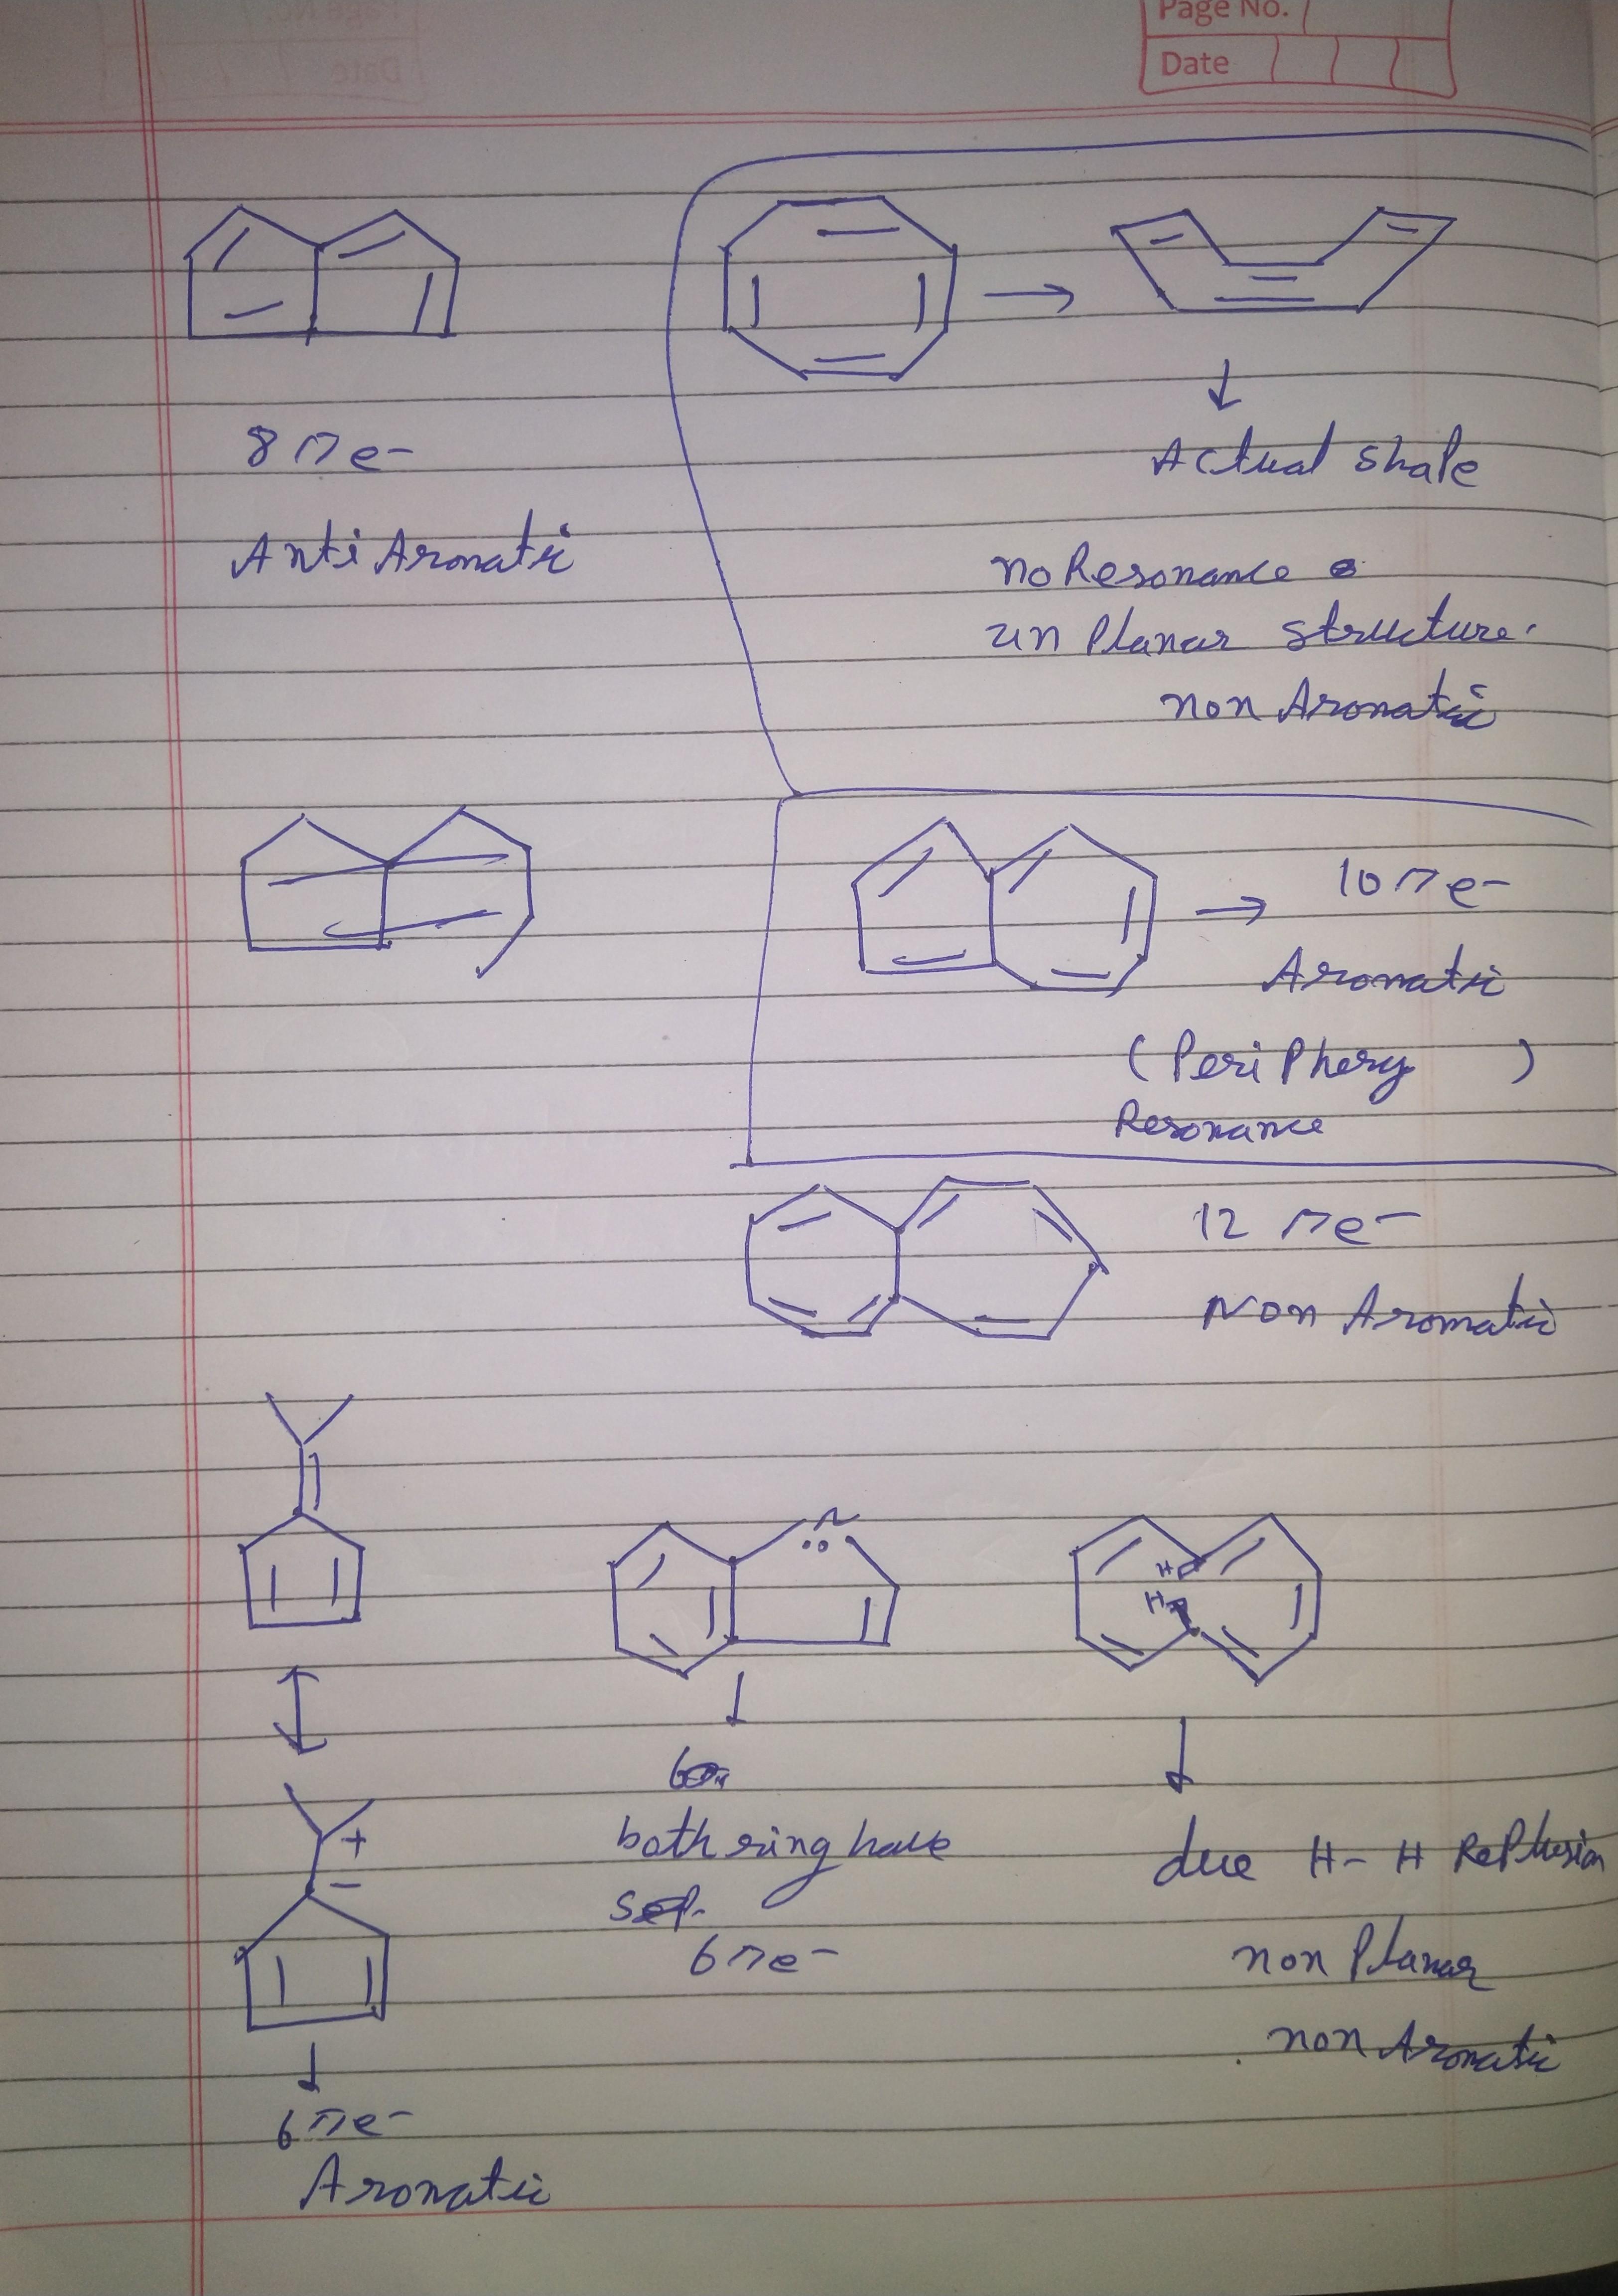 Page No.
Date
8πe-
Anti Aromatic
Actual shape
no Resonance
un Planar structure.
non Aromatic
10πe-
Aromatic
(Periphery)
Resonance
12 πe-
Non Aromatic
N
H
H
both ring have
6πe-
due H-H RePlusion
non Planar
non Aromatic
+
-
6πe-
Aromatic